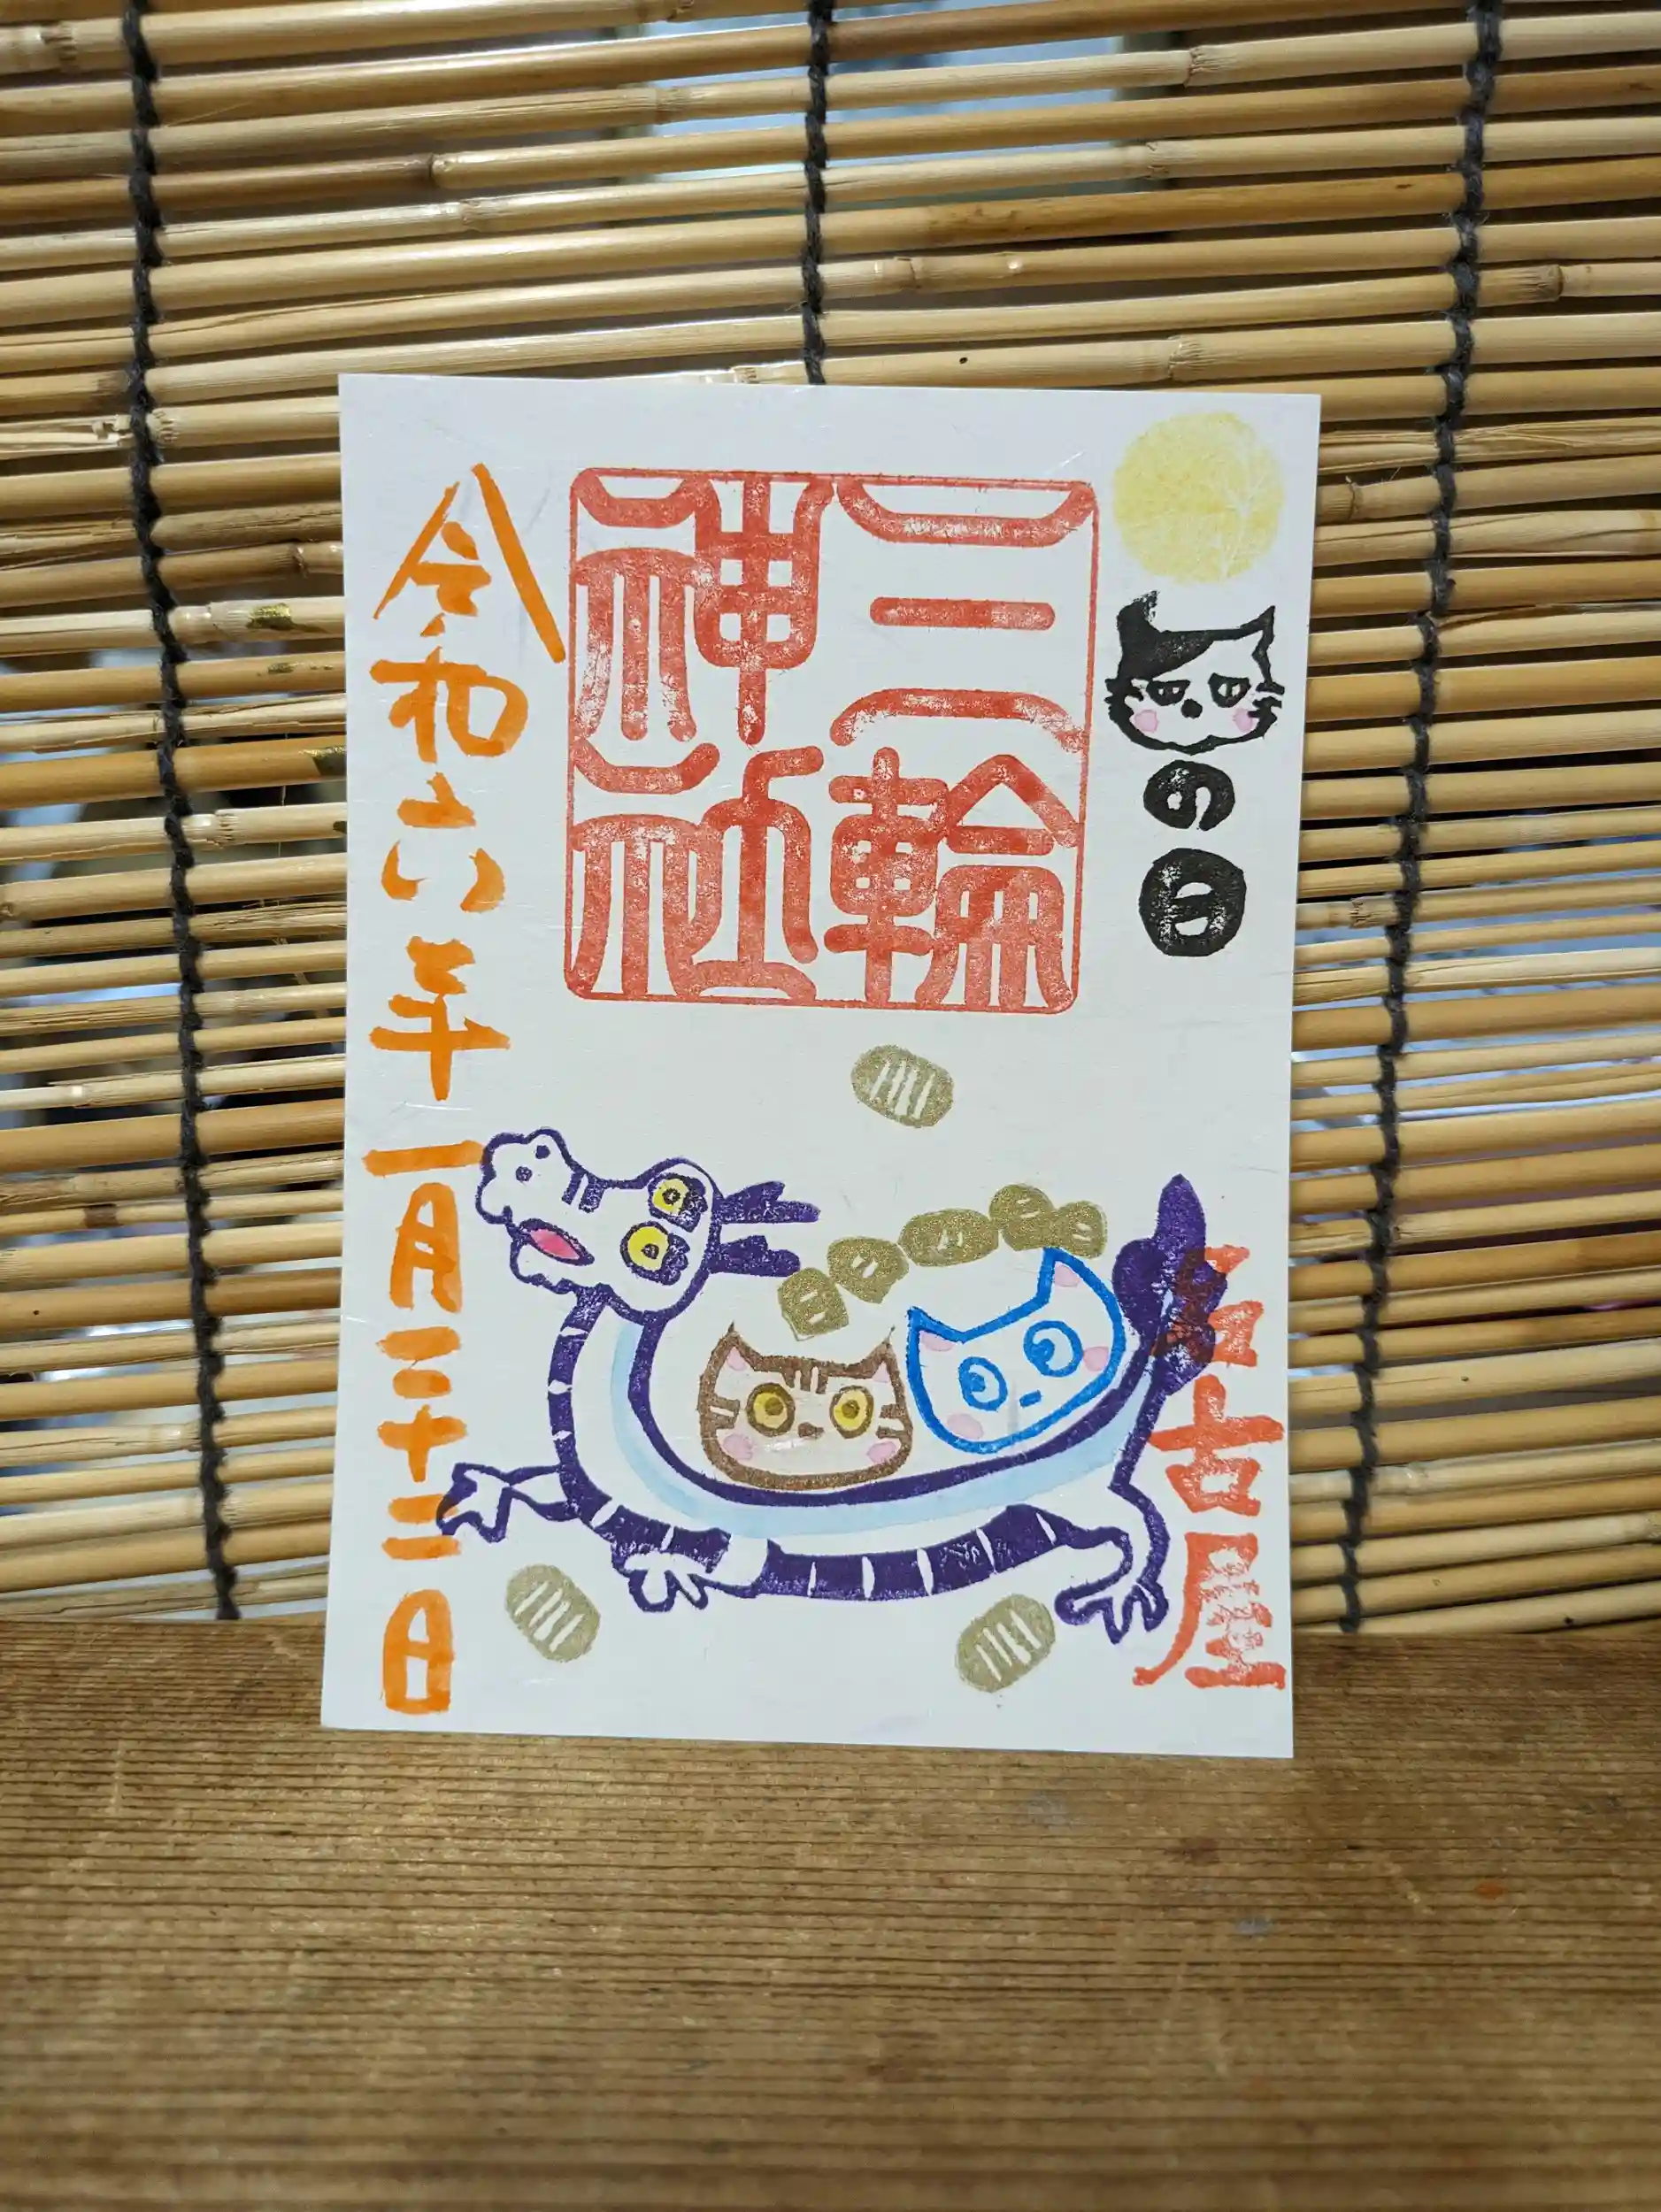 の日
三輪
神社
名古屋
令和六年一月二十二日